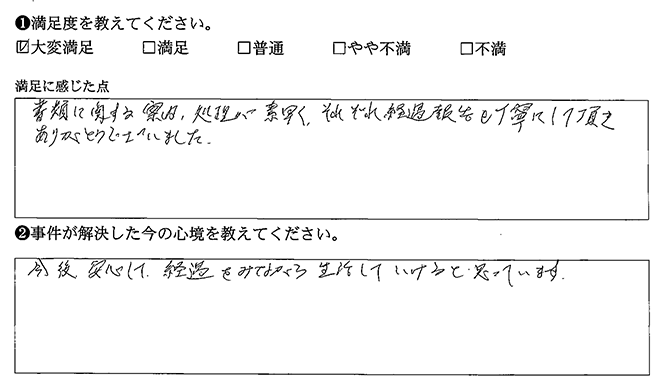 ❶満足度を教えてください。
☑大変満足 □満足 □普通 □やや不満 □不満
満足に感じた点
書類に関する案内、処理が素早く、それぞれ経過報告も丁寧にして頂き
ありがとうございました。
❷事件が解決した今の心境を教えてください。
今後安心して、経過をみながら生活していけると思っています。